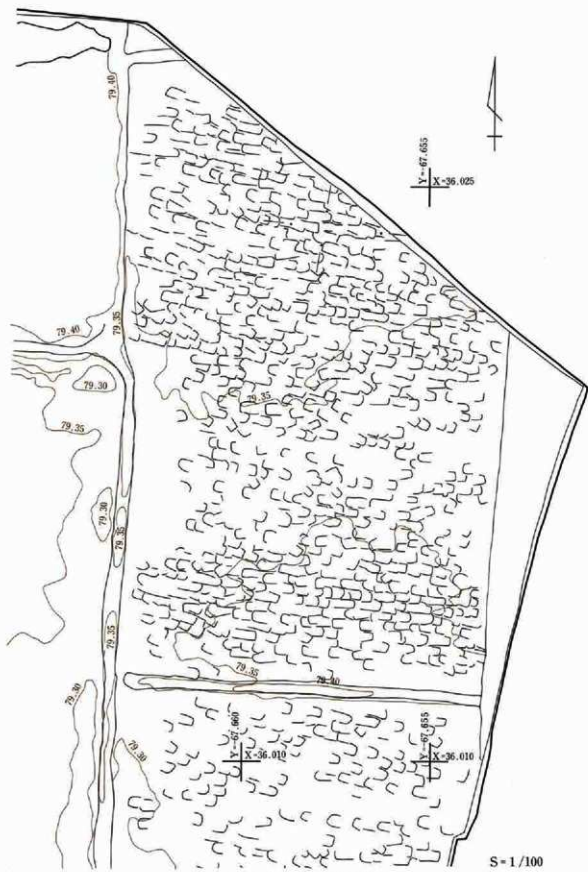 79.40
Y=-67.655
X=36.025
79.35
79.40
79.30
79.35
79.35
79.30
79.35
79.35
79.35
79.40
79.30
79.30
Y=-67.660
X=36.010
Y=-67.655
X=36.010
S=1/100